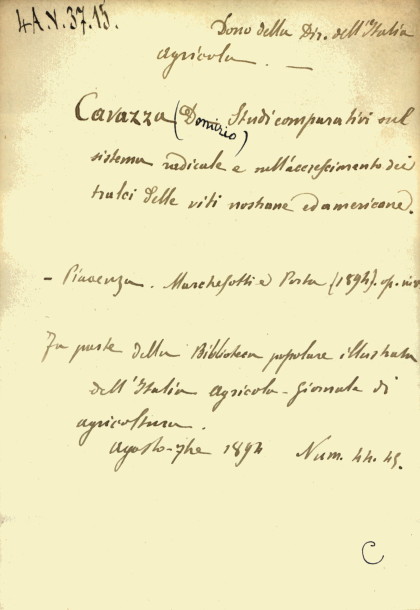 4A.V.37.15.
Dono della Dir. dell'Italia
agricola. —
Cavazza (Domizio) Studi comparativi sul
sistema radicale e nell'accrescimento dei
tralci delle viti nostrane ed americane.
— Piacenza. Marchesotti e Porta (1894). op. in 8
Fa parte della Biblioteca popolare illustrata
dell'Italia agricola - giornale di
agricoltura.
Agosto-7bre 1894 Num. 44. 45.
C